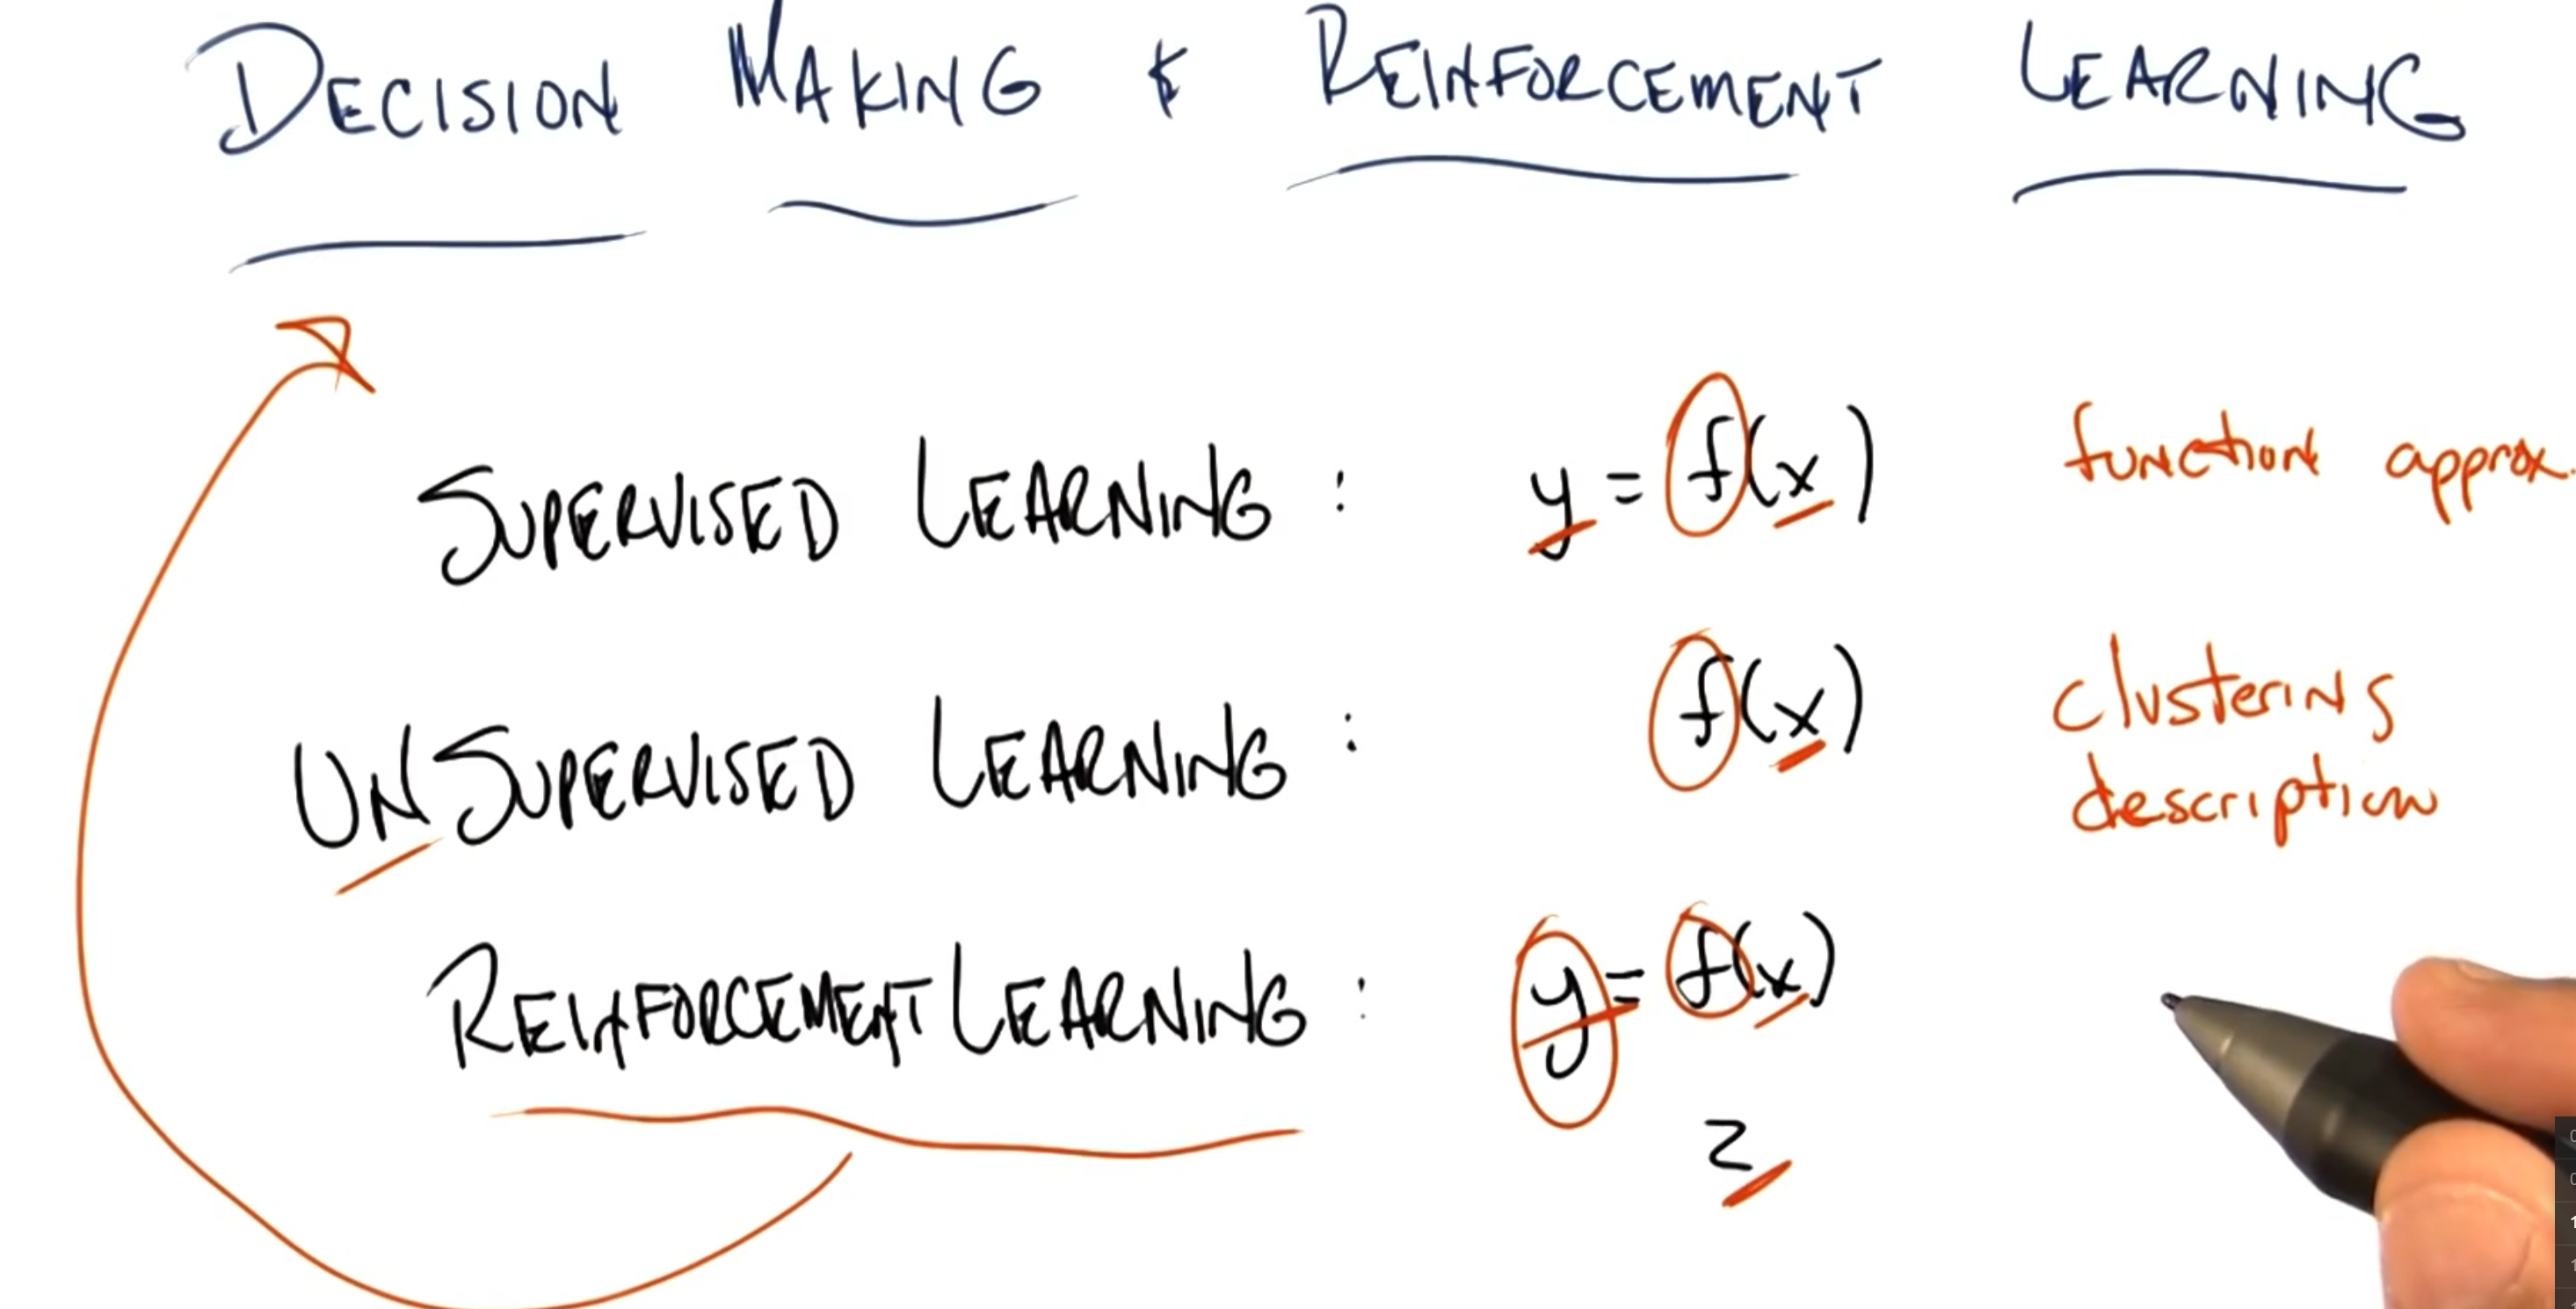 DECISION MAKING & REINFORCEMENT LEARNING
SUPERVISED LEARNING : y = f(x) function approx.
UNSUPERVISED LEARNING : f(x) clustering
description
REINFORCEMENT LEARNING : y = f(x)
z